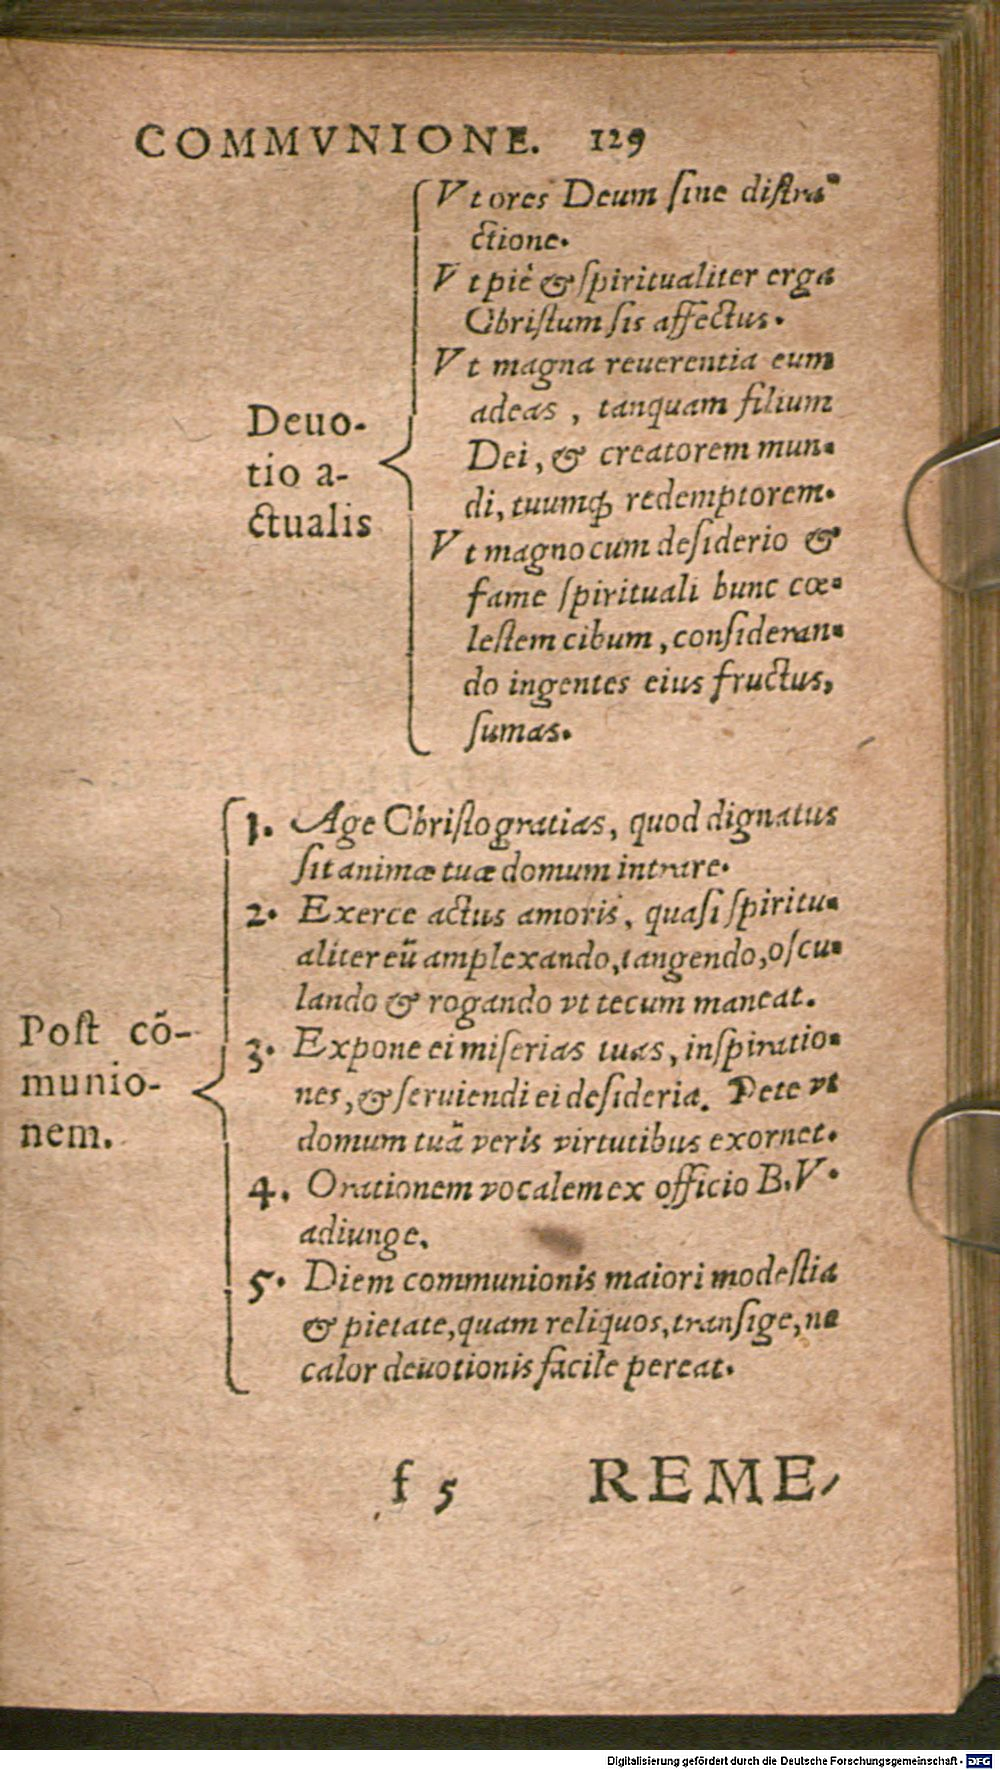 COMMVNIONE. 129
Vt ores Deum ſine diſtra-
ctione.
Vt piè & ſpiritualiter erga
Chriſtum ſis affectus.
Vt magna reuerentia eum
adeas, tanquam filium
Dei, & creatorem mun-
di, tuumq́; redemptorem.
Vt magno cum deſiderio &
fame ſpirituali hunc cœ-
leſtem cibum, conſideran-
do ingentes eius fructus,
ſumas.
Deuo-
tio a-
ctualis
1. Age Chriſto gratias, quod dignatus
ſit animæ tuæ domum intrare.
2. Exerce actus amoris, quaſi ſpiritu-
aliter eū amplexando, tangendo, oſcu-
lando & rogando vt tecum maneat.
3. Expone ei miſerias tuas, inſpiratio-
nes, & ſeruiendi ei deſideria. Pete vt
domum tuā veris virtutibus exornet.
4. Orationem vocalem ex officio B. V.
adiunge.
5. Diem communionis maiori modeſtia
& pietate, quam reliquos, tranſige, ne
calor deuotionis facile pereat.
Poſt cō-
munio-
nem.
f 5 REME-
Digitalisierung gefördert durch die Deutsche Forschungsgemeinschaft - DFG